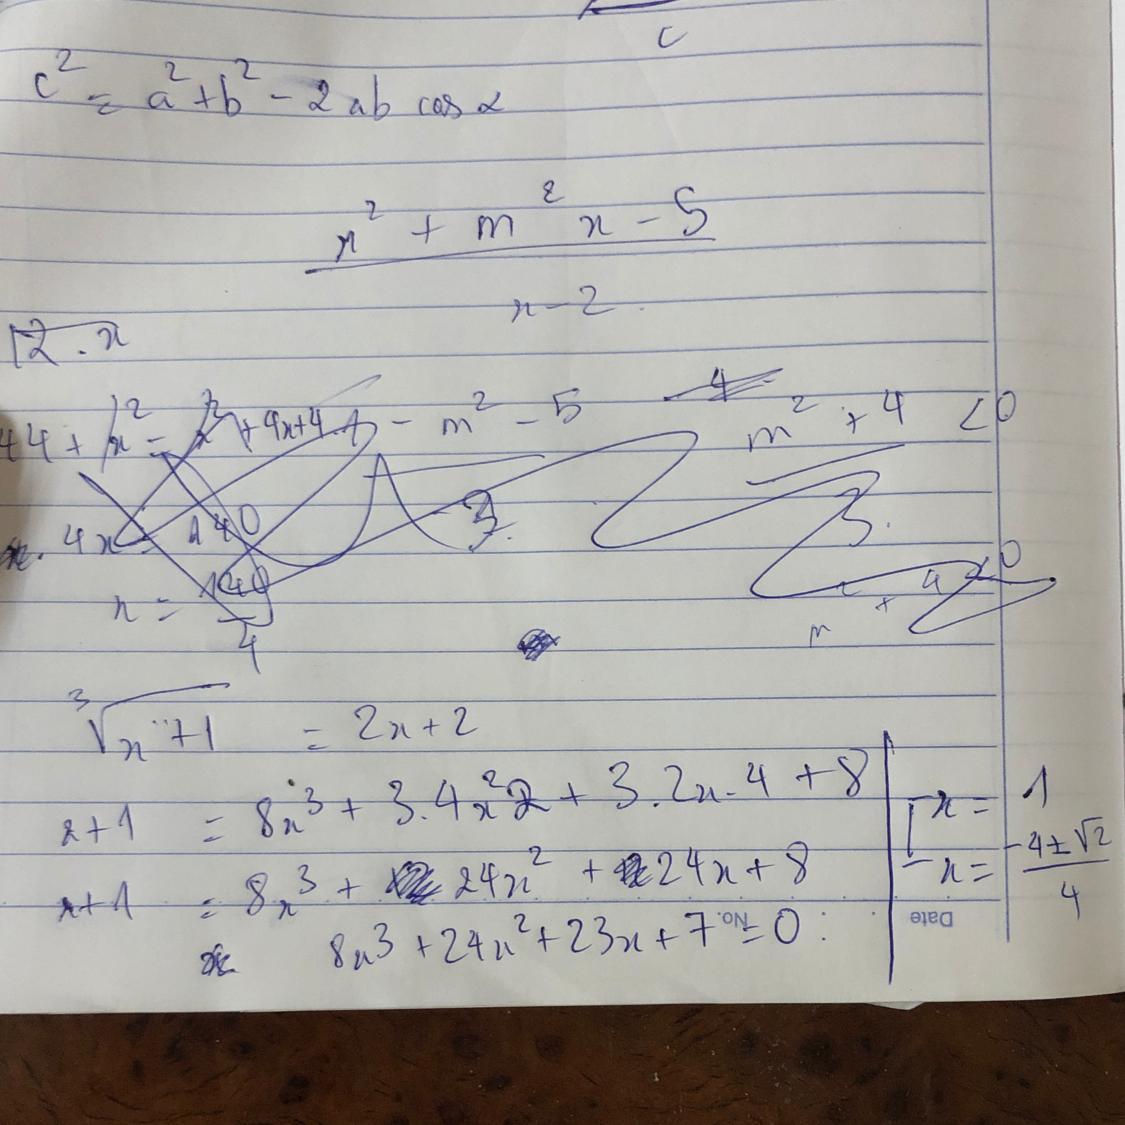 c
c² = a² + b² - 2ab cos α
x² + m² x - 5
x - 2
√2 . x
44 + x² = x² + 4x + 4
- m² - 5
4
m² + 4 < 0
4x = 140
x = 140/4
∛(x + 1) = 2x + 2
x + 1 = 8x³ + 3.4x²2 + 3.2x.4 + 8
x = 1
x + 1 = 8x³ + 24x² + 24x + 8
x = (-4 ± √2)/4
8x³ + 24x² + 23x + 7 = 0
No.
Date